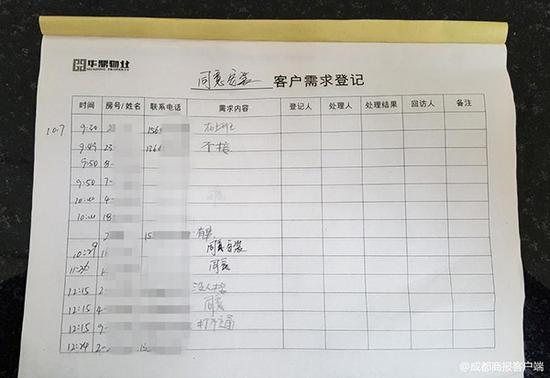 华鼎物业
HUADING PROPERTY
同意安装 客户需求登记
时间 房号/姓名 联系电话 需求内容 登记人 处理人 处理结果 回访人 备注
10.7 9:30 2 156
9:49 23 136 不接
9:50 8
9:50 7-
10:00 4-
10:00 18
2 15
10:29 1 同意安装
11:26 同意
12:15 2- 没人接
12:15 4 同意
12:15 9- 打不通
12:24 2-
@成都商报客户端